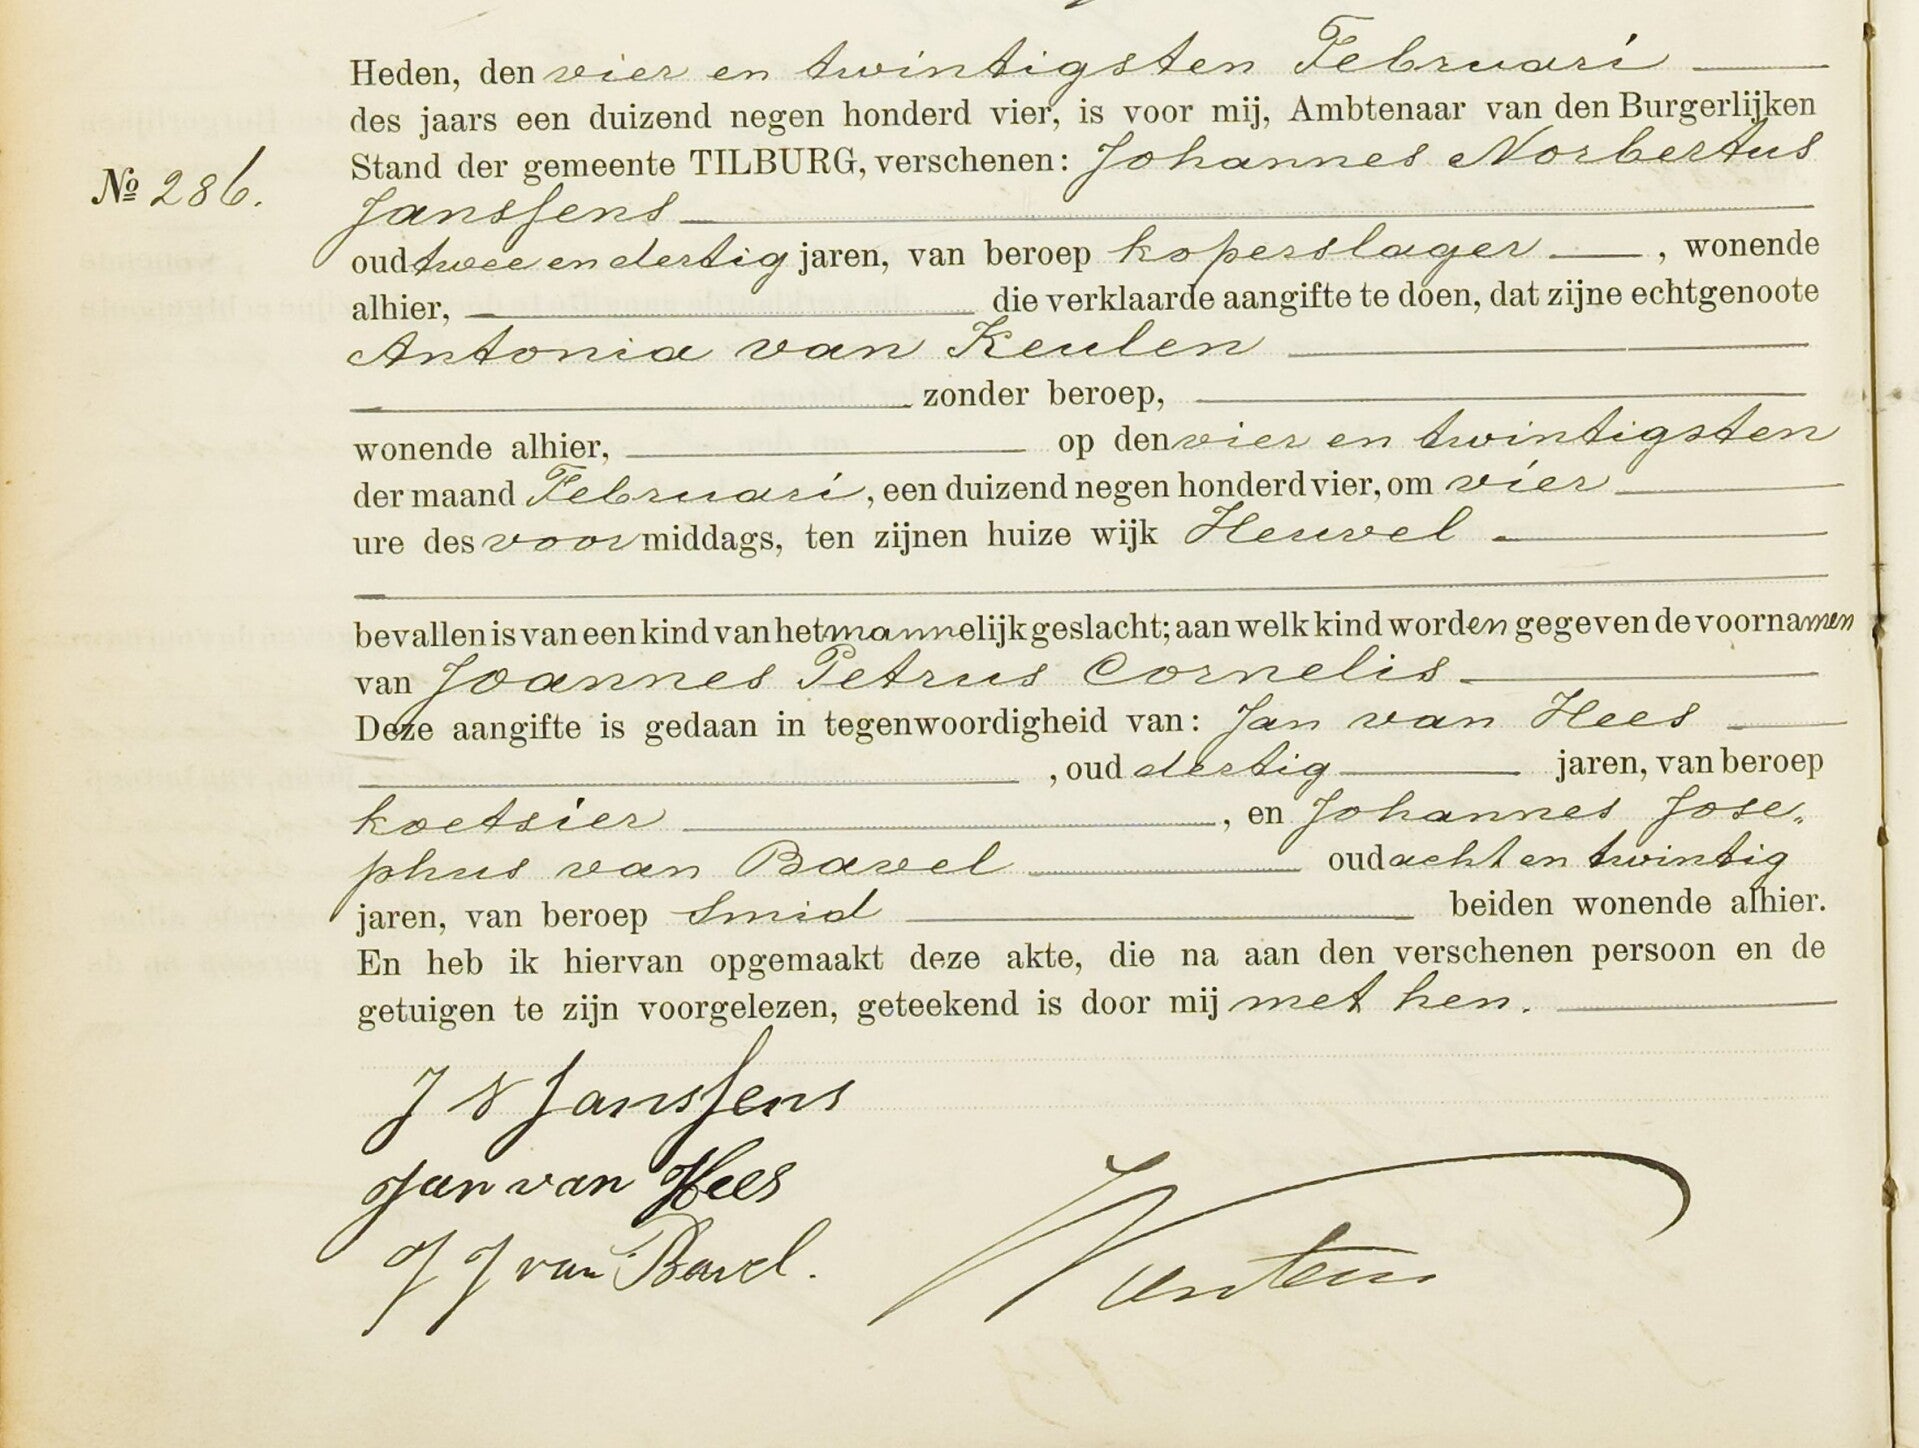 Heden, den vier en twintigsten Februari
des jaars een duizend negen honderd vier, is voor mij, Ambtenaar van den Burgerlijken
Stand der gemeente TILBURG, verschenen: Johannes Norbertus
№ 286.
Janssens
oud twee en dertig jaren, van beroep koperslager, wonende
alhier, die verklaarde aangifte te doen, dat zijne echtgenoote
Antonia van Keulen
zonder beroep,
wonende alhier, op den vier en twintigsten
der maand Februari, een duizend negen honderd vier, om vier
ure des voormiddags, ten zijnen huize wijk Heuvel
bevallen is van een kind van het mannelijk geslacht; aan welk kind worden gegeven de voornamen
van Joannes Petrus Cornelis
Deze aangifte is gedaan in tegenwoordigheid van: Jan van Hees
, oud dertig jaren, van beroep
koetsier, en Johannes Jose„
phus van Bavel oud acht en twintig
jaren, van beroep smid beiden wonende alhier.
En heb ik hiervan opgemaakt deze akte, die na aan den verschenen persoon en de
getuigen te zijn voorgelezen, geteekend is door mij met hen.
J N Janssens
Jan van Hees
J J van Bavel.